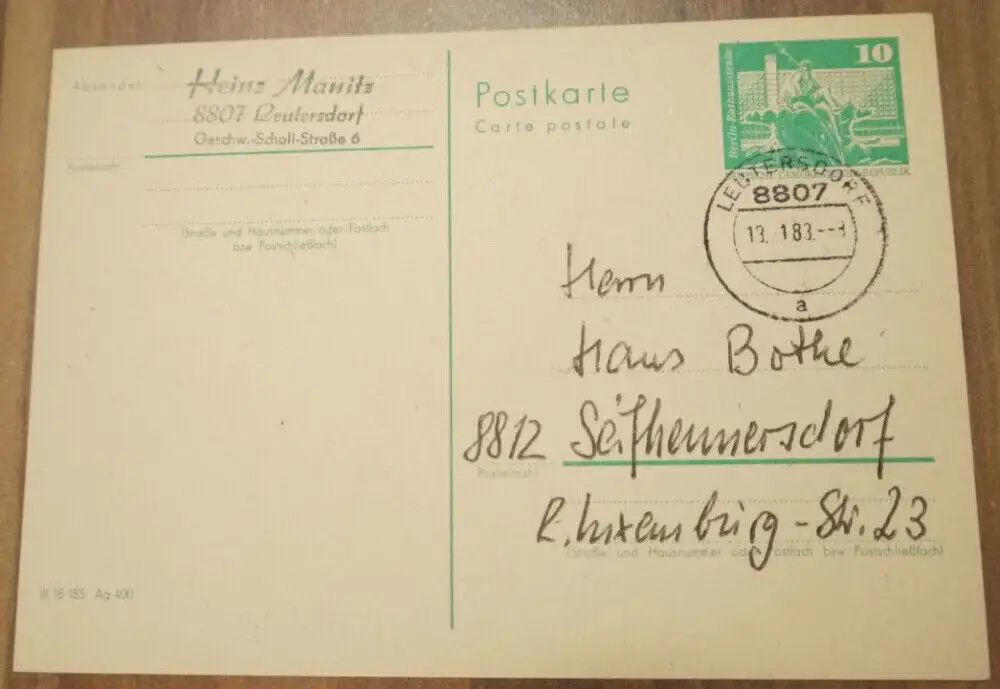 Absender:
Heinz Manitz
8807 Leutersdorf
Geschw.-Scholl-Straße 6
Postleitzahl
(Straße und Hausnummer oder Postfach
bzw Postschließfach)
III 18 185 Ag 400
Postkarte
Carte postale
10
Berlin-Rathausstraße
DEUTSCHE DEMOKRATISCHE REPUBLIK
LEUTERSDORF
8807
13. 1.83.--8
a
Herrn
Hans Bothe
8812 Seifhennersdorf
Postleitzahl
R. Luxemburg-Str. 23
(Straße und Hausnummer oder Postfach bzw Postschließfach)